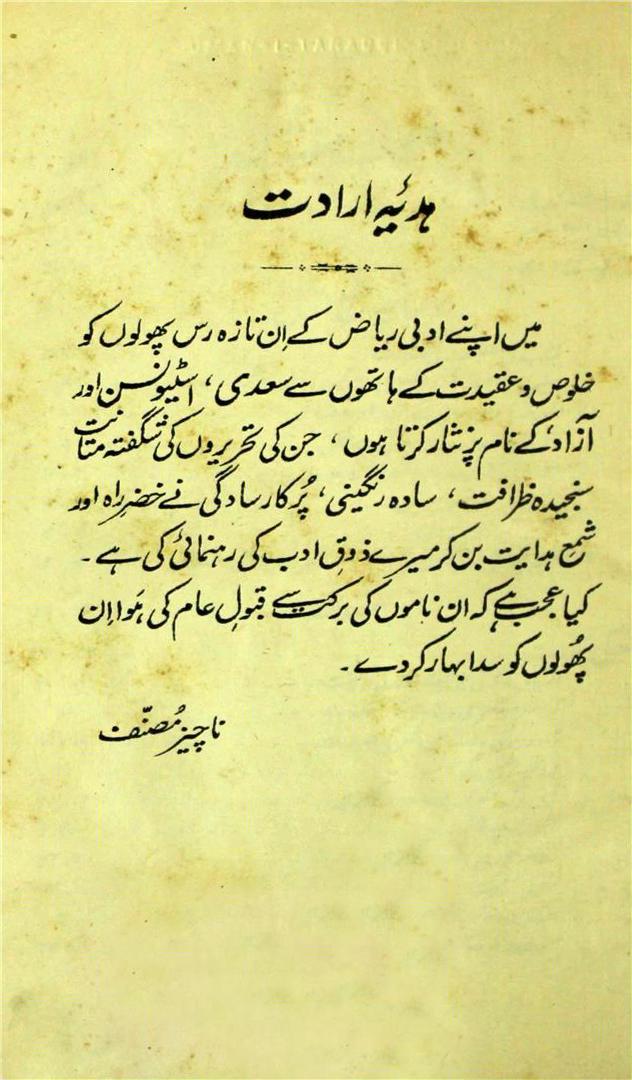 ہدیۂ ارادت
میں اپنے ادبی ریاض کے اِن تازہ رس پھولوں کو
خلوص و عقیدت کے ہاتھوں سے سعدی، اسٹیونسن اور
آزاد کے نام پر نثار کرتا ہوں، جن کی تحریروں کی شگفتہ متانت
سنجیدہ ظرافت، سادہ رنگینی، پُرکار سادگی نے خضرِ راہ اور
شمع ہدایت بن کر میرے ذوقِ ادب کی رہنمائی کی ہے۔
کیا عجب ہے کہ ان ناموں کی برکت سے قبولِ عام کی ہَوا اِن
پھُولوں کو سدا بہار کر دے۔
ناچیز مُصنّف